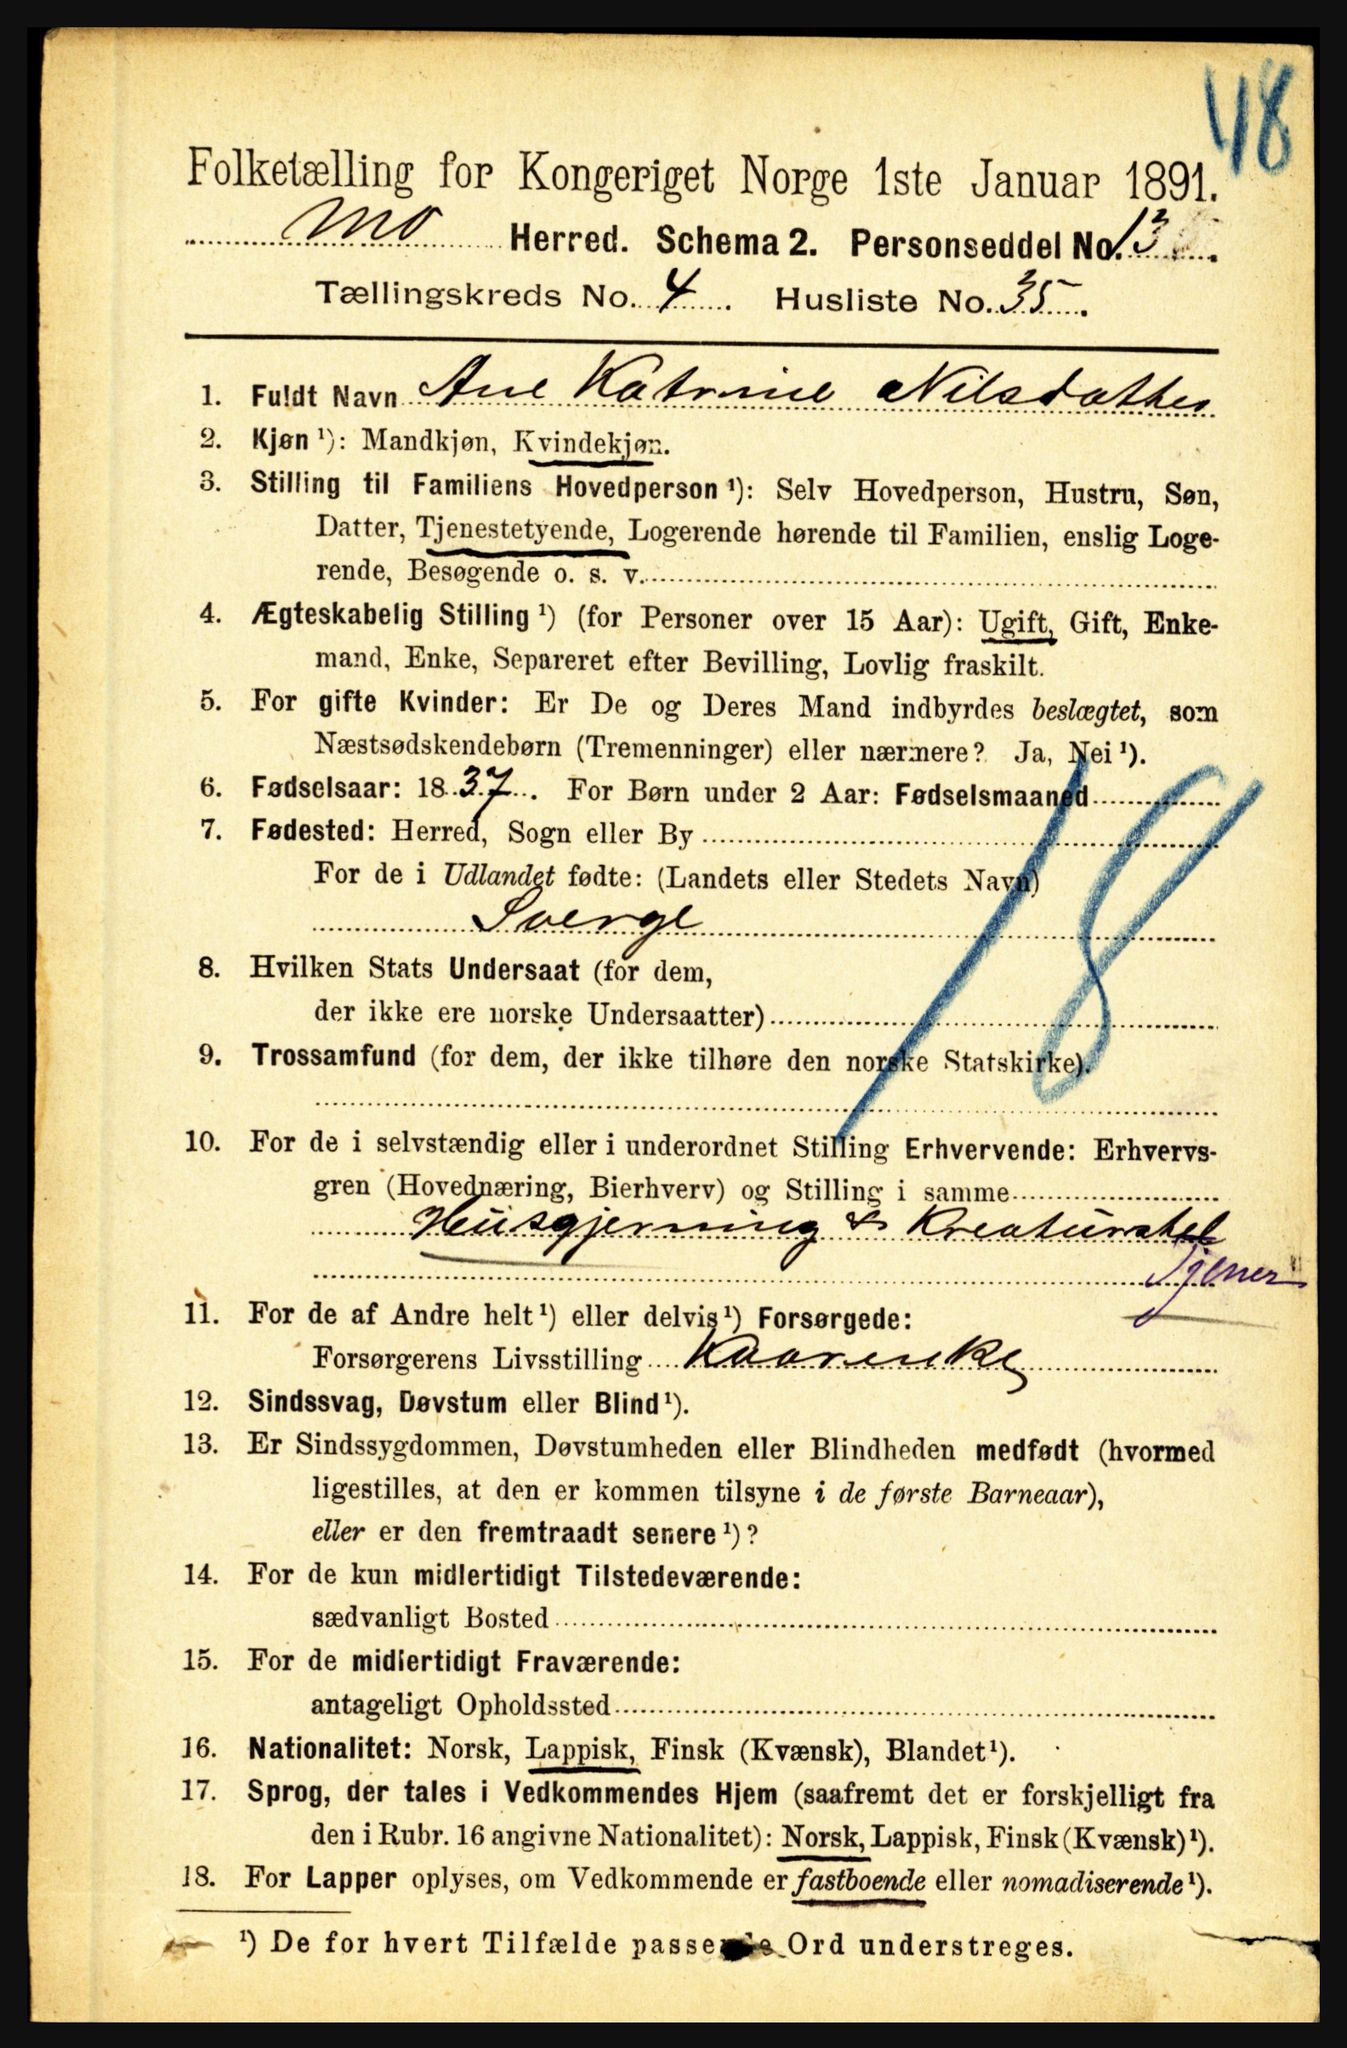 48
Folketælling for Kongeriget Norge 1ste Januar 1891.
Mo Herred. Schema 2. Personseddel No. 13
Tællingskreds No. 4. Husliste No. 35.
1. Fuldt Navn Ane Katrine Nilsdatter
2. Kjøn ¹): Mandkjøn, Kvindekjøn.
3. Stilling til Familiens Hovedperson ¹): Selv Hovedperson, Hustru, Søn,
Datter, Tjenestetyende, Logerende hørende til Familien, enslig Loge-
rende, Besøgende o. s. v.
4. Ægteskabelig Stilling ¹) (for Personer over 15 Aar): Ugift, Gift, Enke-
mand, Enke, Separeret efter Bevilling, Lovlig fraskilt.
5. For gifte Kvinder: Er De og Deres Mand indbyrdes beslægtet, som
Næstsødskendebørn (Tremenninger) eller nærmere? Ja, Nei ¹).
6. Fødselsaar: 1837. For Børn under 2 Aar: Fødselsmaaned
7. Fødested: Herred, Sogn eller By
For de i Udlandet fødte: (Landets eller Stedets Navn)
Sverge
18
8. Hvilken Stats Undersaat (for dem,
der ikke ere norske Undersaatter)
9. Trossamfund (for dem, der ikke tilhøre den norske Statskirke).
10. For de i selvstændig eller i underordnet Stilling Erhvervende: Erhvervs-
gren (Hovednæring, Bierhverv) og Stilling i samme
Husgjerning & Kreaturstel
Tjener
11. For de af Andre helt ¹) eller delvis ¹) Forsørgede:
Forsørgerens Livsstilling Kaarenke
12. Sindssvag, Døvstum eller Blind ¹).
13. Er Sindssygdommen, Døvstumheden eller Blindheden medfødt (hvormed
ligestilles, at den er kommen tilsyne i de første Barneaar),
eller er den fremtraadt senere ¹)?
14. For de kun midlertidigt Tilstedeværende:
sædvanligt Bosted
15. For de midlertidigt Fraværende:
antageligt Opholdssted
16. Nationalitet: Norsk, Lappisk, Finsk (Kvænsk), Blandet ¹).
17. Sprog, der tales i Vedkommendes Hjem (saafremt det er forskjelligt fra
den i Rubr. 16 angivne Nationalitet): Norsk, Lappisk, Finsk (Kvænsk) ¹).
18. For Lapper oplyses, om Vedkommende er fastboende eller nomadiserende ¹).
¹) De for hvert Tilfælde passende Ord understreges.